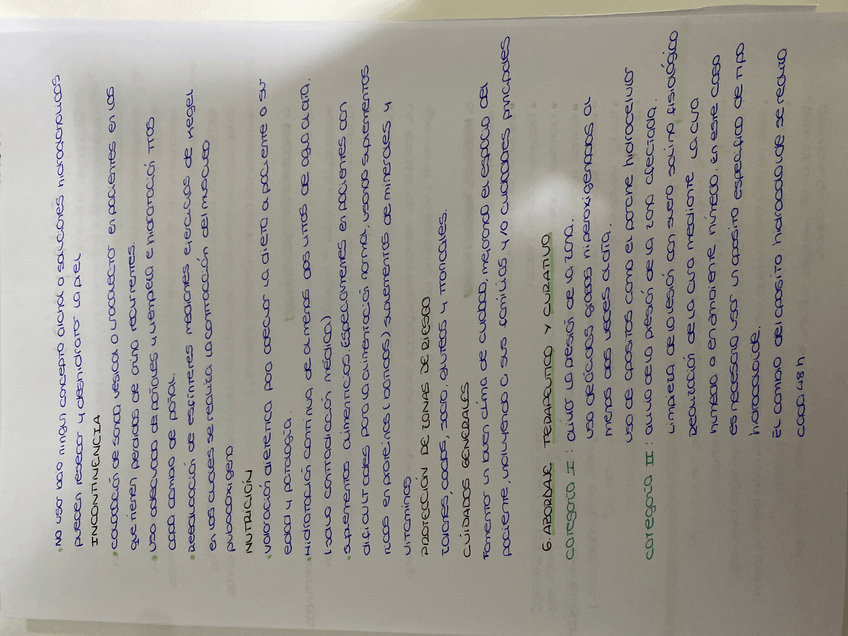 •No usar bajo ningún concepto alcohol o soluciones hidroalcohólicas
pueden resecar y deshidratar la piel
INCONTINENCIA
•Colocación de sonda vesical o colector en pacientes en los
que tienen pérdidas de orina recurrentes.
•Uso adecuado de pañales y limpieza e hidratación tras
cada cambio de pañal.
•Reeducación de esfínteres mediante ejercicios de Kegel
en los cuales se realiza la contracción del músculo
pubococcígeo
NUTRICIÓN
•Valoración dietética para adecuar la dieta a paciente a su
edad y patología.
•Hidratación continua de al menos dos litros de agua al día.
(salvo contradicción médica)
•Suplementos alimenticios especialmente en pacientes con
dificultades para la alimentación normal, usando suplementos
ricos en proteínas (batidos) suplementos de minerales y
vitaminas
PROTECCIÓN DE ZONAS DE RIESGO
Talones, codos, sacro, glúteos y trocánteres.
CUIDADOS GENERALES
Fomentar un buen clima de cuidado, mejorando el espacio del
paciente, volviendo a sus familias y/o cuidadores principales
6. ABORDAJE TERAPÉUTICO Y CURATIVO
Categoría I: aliviar la presión de la zona.
uso de ácidos grasos hiperoxigenados al
menos dos veces al día.
uso de apósitos como el foam hidrocelular
Categoría II: alivio de la presión de la zona afectada.
Limpieza de la lesión con suero salino fisiológico
Realización de la cura mediante la cura
húmeda o en ambiente húmedo. en este caso
es necesario usar un apósito específico de tipo
hidrocoloide.
El cambio del apósito hidrocoloide se realiza
cada 48 h.